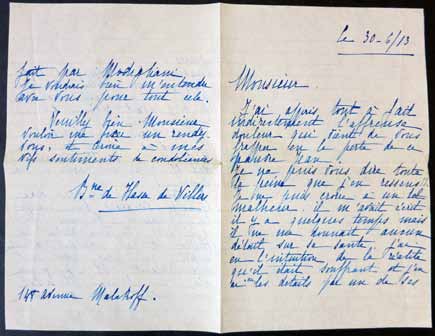 le 30-6/13
Monsieur.
J'ai appris tout à fait
indirectement l'affreuse
douleur qui vient de vous
frapper en la perte de ce
pauvre Jean.
Je ne puis vous dire toute
la peine que j'en ressens!!
Je ne puis croire à un tel
malheur il m'avait écrit
il y a quelques temps mais
il ne me donnait aucun
détail sur sa santé, j'ai
eu l'intention, de la réalité
qu'il était souffrant et j'en
ai les détails par un de ses
fait par
Je voudrais bien m'entendre
avec vous pour tout cela.
Veuillez bien Monsieur
vouloir me fixer un rendez
vous, et croire à mes
vifs sentiments de condoléances
Bne de Villers
148 avenue Malakoff.